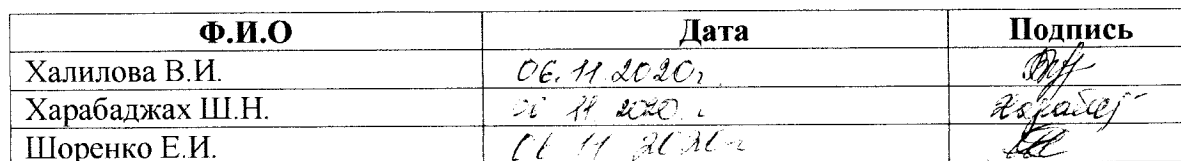 Ф.И.О Дата Подпись
Халилова В.И. 06.11.2020г
Харабаджах Ш.Н. 06 11 2020 г
Шоренко Е.И. 06 11 2020г